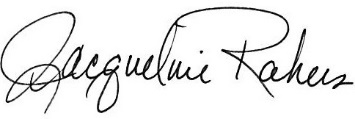 Jacqueline Rakers